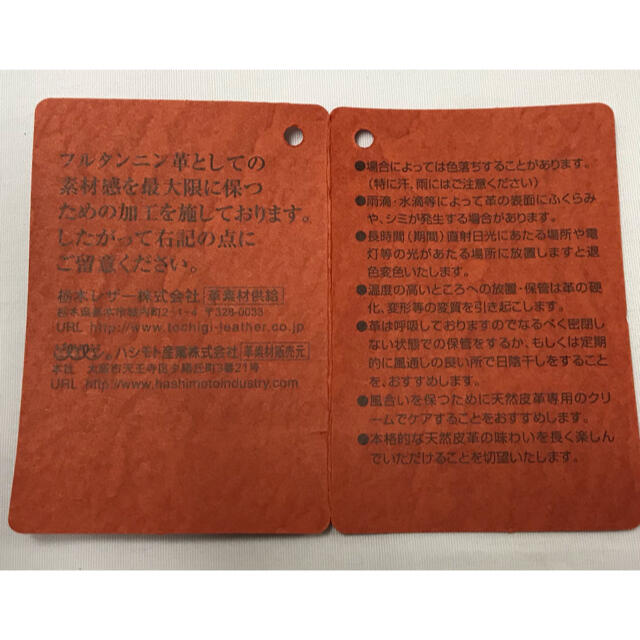 フルタンニン革としての
素材感を最大限に保つ
ための加工を施しております。
したがって右記の点に
ご留意ください。
栃木レザー株式会社 革素材供給
栃木県栃木市城内町2-1-4 〒328-0033
URL http://www.tochigi-leather.co.jp
ハシモト産業株式会社 革素材販売元
本社 大阪市天王寺区夕陽丘町3番21号
URL http://www.hashimotoindustry.com
●場合によっては色落ちすることがあります。
(特に汗、雨にはご注意ください)
●雨滴・水滴等によって革の表面にふくらみ
や、シミが発生する場合があります。
●長時間(期間)直射日光にあたる場所や電
灯等の光があたる場所に放置しますと退
色変色いたします。
●温度の高いところへの放置・保管は革の硬
化、変形等の変質を引き起こします。
●革は呼吸しておりますのでなるべく密閉し
ない状態での保管をするか、もしくは定期
的に風通しの良い所で日陰干しをすること
を、おすすめします。
●風合いを保つために天然皮革専用のクリ
ームでケアすることをおすすめします。
●本格的な天然皮革の味わいを長く楽しん
でいただけることを切望いたします。